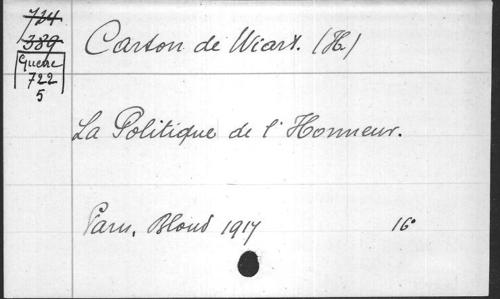 724
389
Guerre
722
5
Carton de Wiart. (H)
La Politique de l'Honneur.
Paris, Bloud 1917 16°